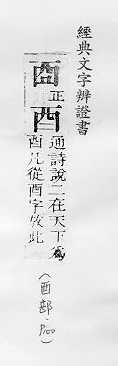 經典文字辨證書
正
酉
通詩說二在天下爲
酉凡從酉字放此
(酉部.P100)